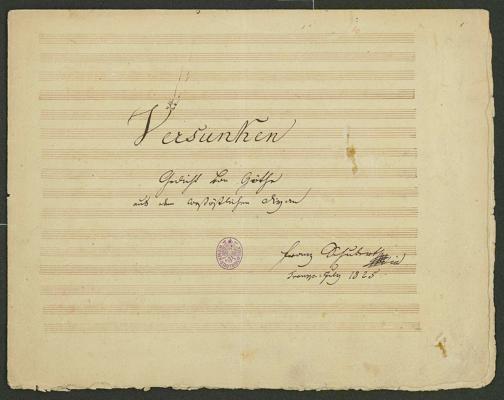 Versunken
Gedicht von Göthe
aus dem westöstlichen Divan
Franz Schubert mpia
1825